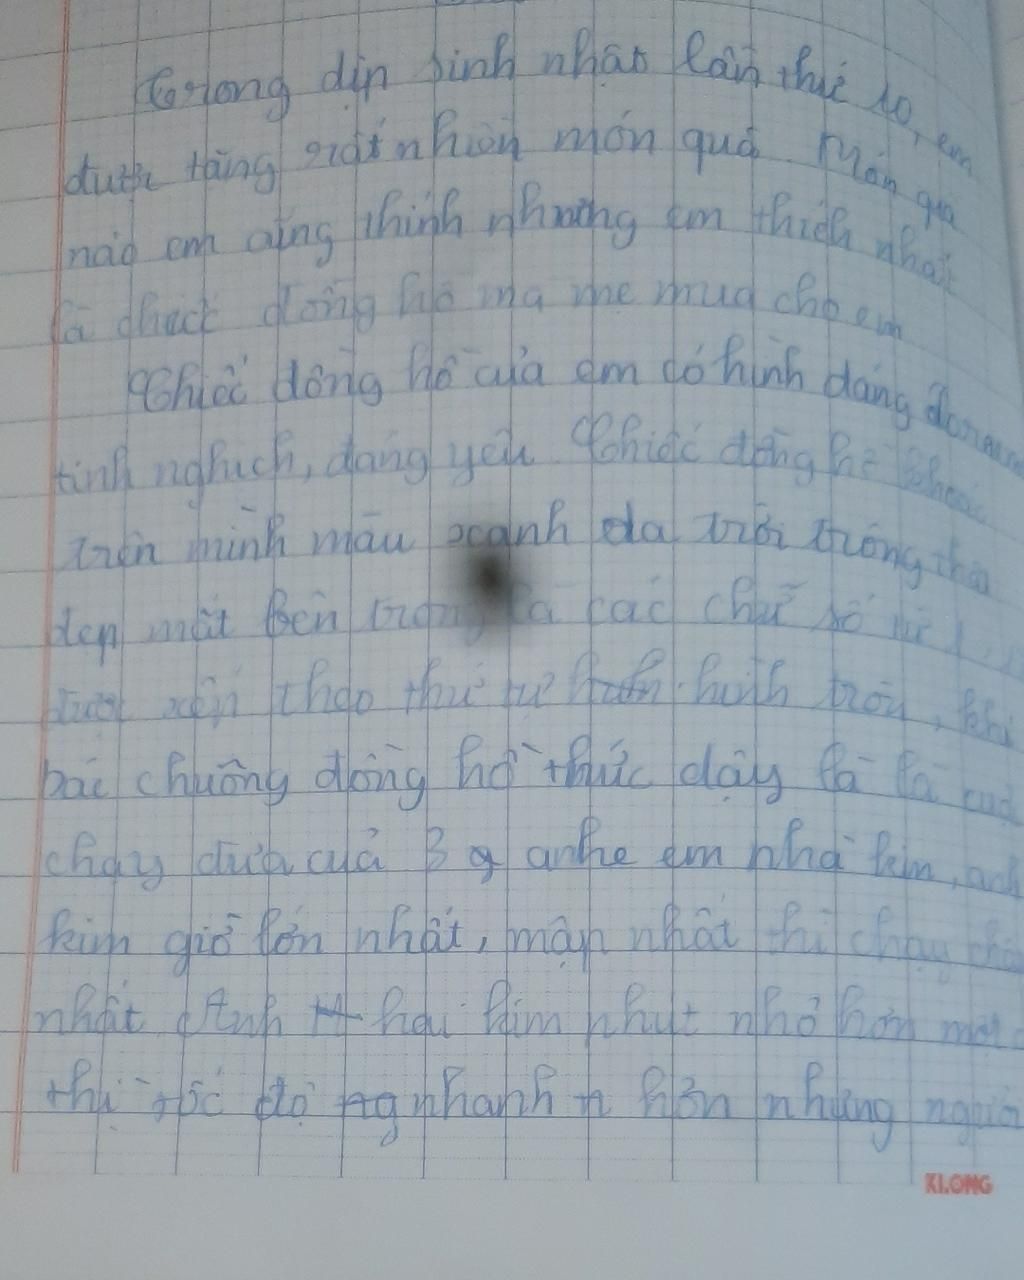 Trong dịp sinh nhật lần thứ 10, em
được tặng rất nhiều món quà. Món quà
nào em cũng thinh nhưng em thích nhất
là chiếc đồng hồ mà mẹ mua cho em
Chiếc đồng hồ của em có hình dáng
tinh nghịch, đáng yêu. Chiếc đồng hồ
trên mình màu xanh da trời trông
đẹp mắt Bên trong là các chữ số
xếp theo thứ tự hình tròn, khi
bác chuông đồng hồ thức dậy là là
chạy đưa của 3 anhe em nhà kim, anh
kim giờ lớn nhất, mập nhất thì chạy
nhất Anh hai kim phút nhỏ hơn một
thì tốc độ nhanh hơn nhưng người
KLONG